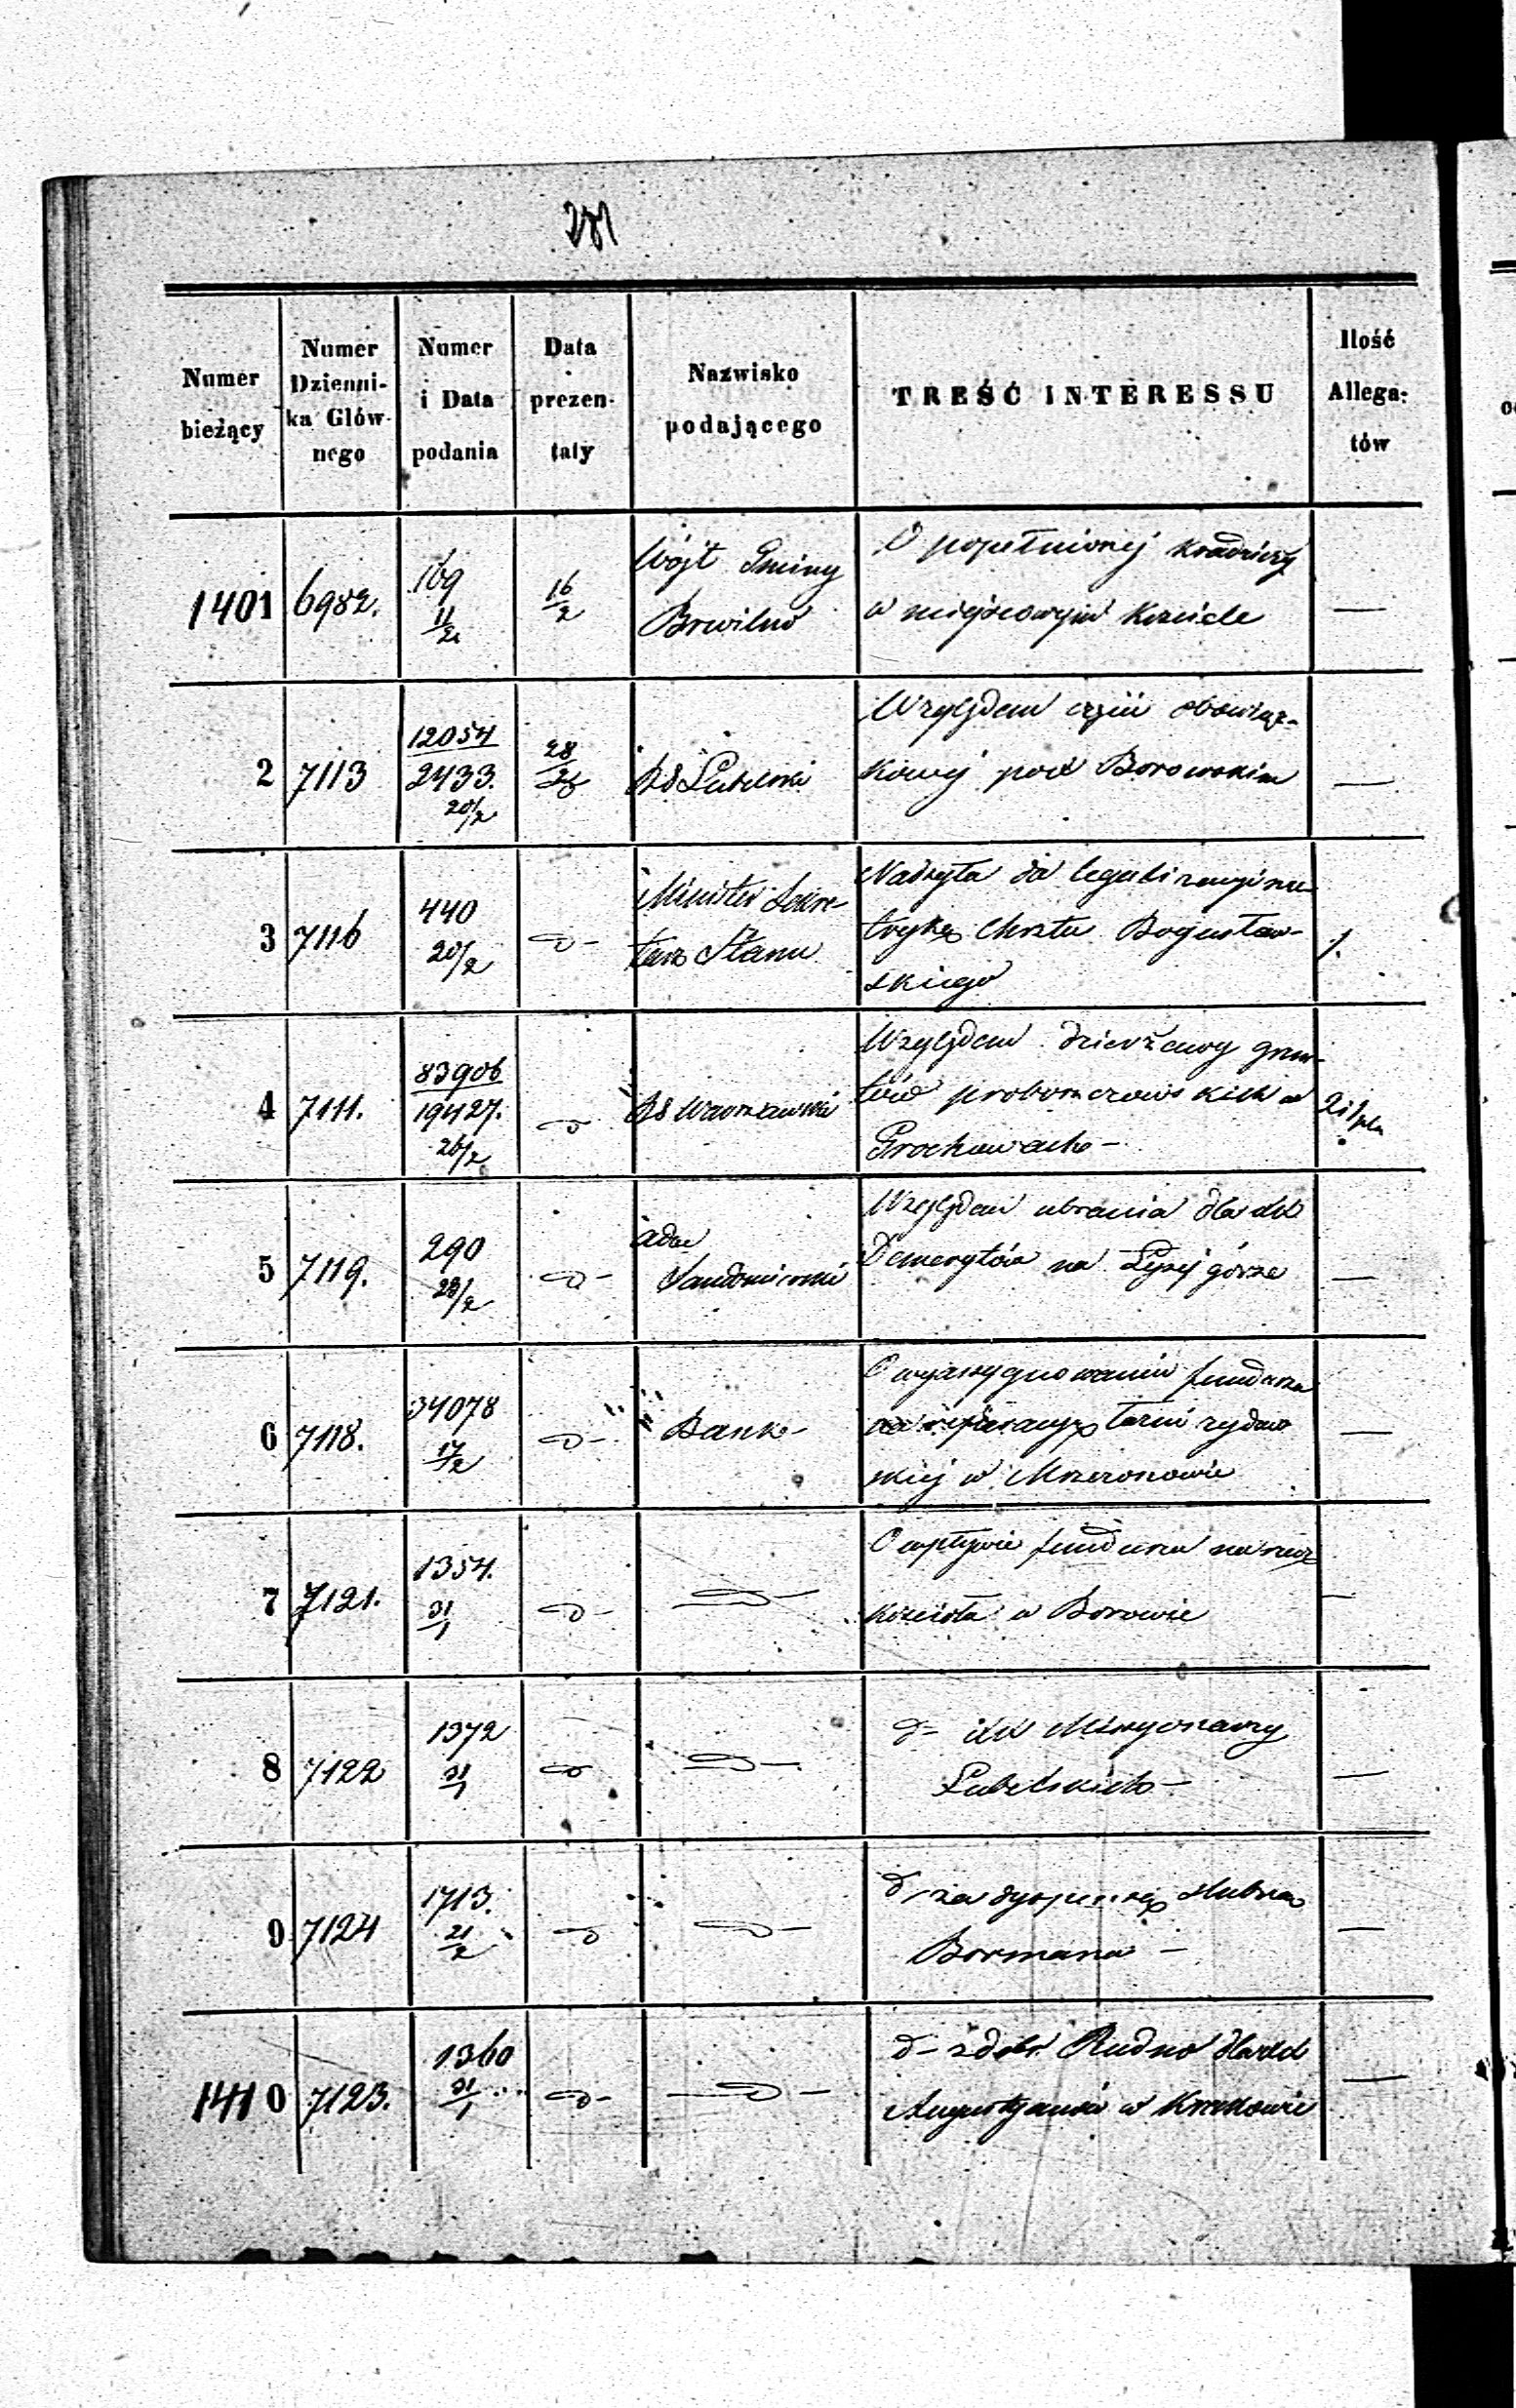 281
Numer bieżący
Numer Dzienni- ka Głów- nego
Numer i Data podania
Data prezen- taty
Nazwisko podającego
TREŚĆ INTERESSU
Ilość Allega- tów
1401 6982. 169 11/2 16/2 Wójt Gminy Brwilno
O popełnionej kradzieży
w miejscowym kościele —
2 7113 12054 2433. 20/2 28/2 RG Lubelski
Względem części obowiąz-
kowej pod Borowskim —
3 7116 440 20/2 –d– Minister Sekre- tarz Stanu
Nadsyła do legalizacyi me-
trykę Chrztu Bogusław-
skiego 1.
4 7111. 83906 19427. 26/2 –d– RG Warszawski
Względem dzierżawy grun-
tów proboszczowskich w
Grochowach –
5 7119. 290 28/2 –d– Adm Sandomierski
Względem ubrania dla XX
Demerytów na Łysej górze —
6 7118. 34078 17/2 –d– Bank –
O wyassygnowaniu funduszu
na reperacyę łaźni żydow
skiej w Mszczonowie —
7 7121. 1354. 31/1 –d– –d–
O wpływie funduszu na rzecz
kościoła w Borowie —
8 7122 1372 31/1 –d– –d–
d– XX Missyonarzy
Lubelskich – —
9 7124 1713. 21/2 –d– –d–
d– za dyspensę ślubną
Bormana – —
1410 7123. 1360 31/1 –d– –d–
d– z dóbr Rudno dla XX
Augustyanów w Krakowie —